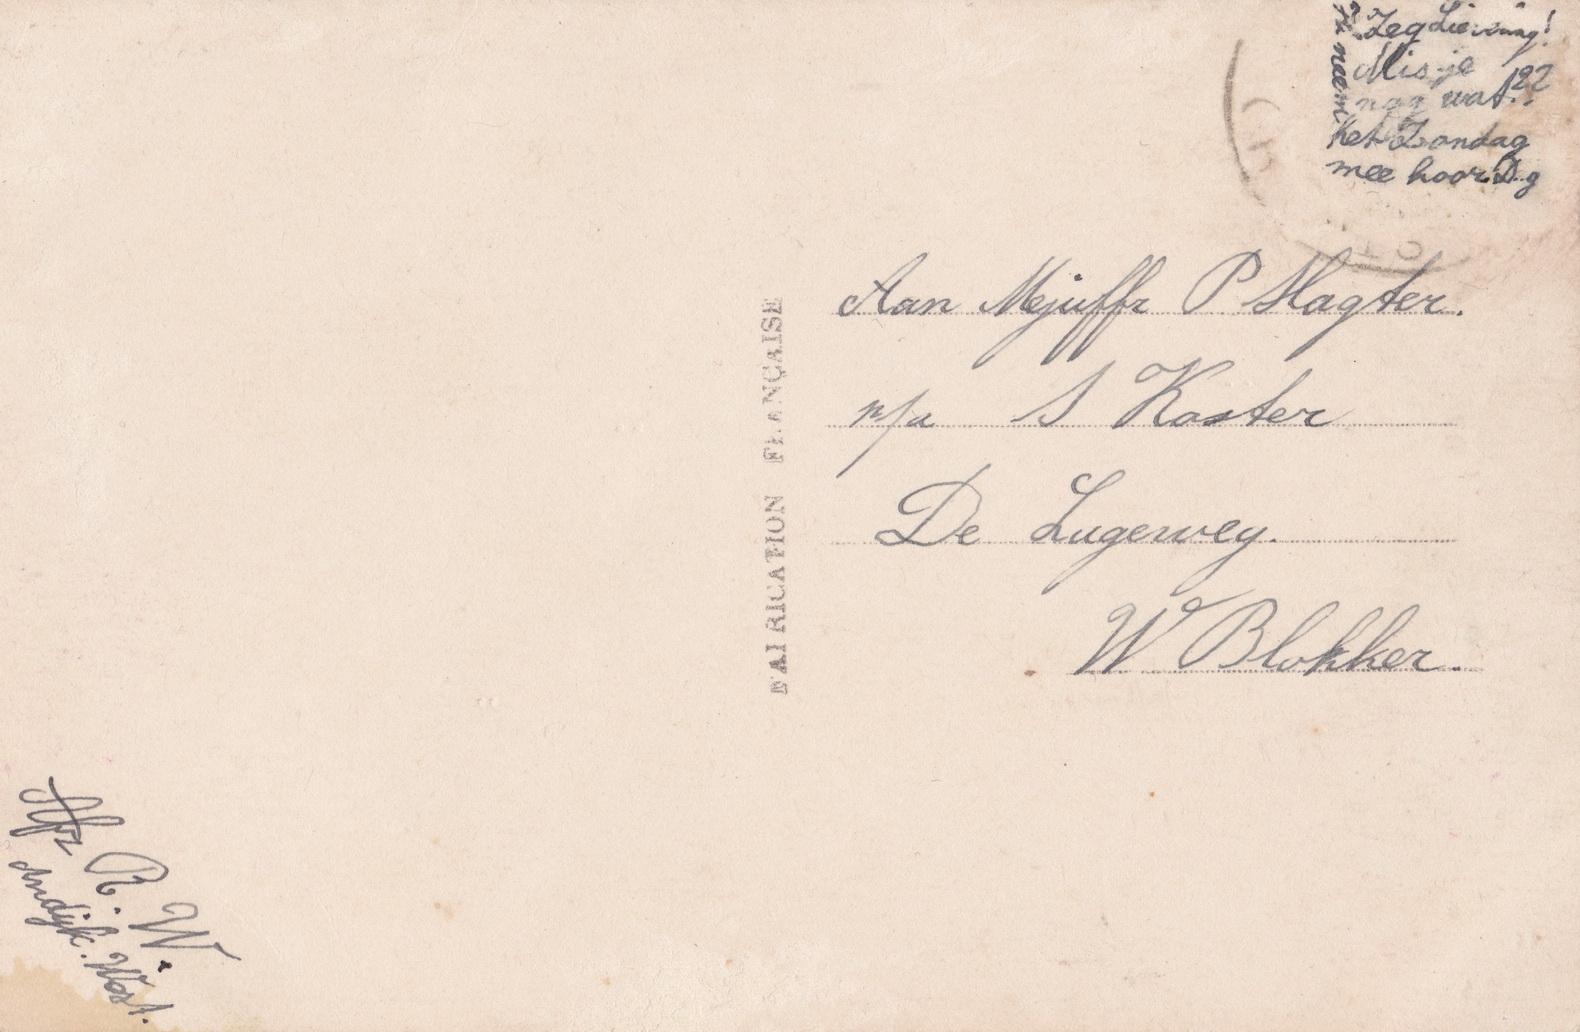 Zeg Lieveling!
Mis je
nog wat!??
Ik neem
het Zondag
mee hoor. D.g
Aan Mejuffr P Slagter.
p/a S Koster
De Lugerweg.
W Blokker.
FABRICATION FRANÇAISE
Afz R. W.
Andijk. West.